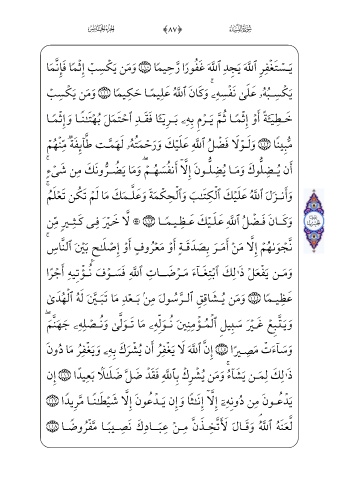 سُورَةُ النِّسَاءِ ﴿٨٧﴾ الجزء الخامس
يَسْتَغْفِرِ ٱللَّهَ يَجِدِ ٱللَّهَ غَفُورًا رَّحِيمًا ١١٠ وَمَن يَكْسِبْ إِثْمًا فَإِنَّمَا
يَكْسِبُهُۥ عَلَىٰ نَفْسِهِۦ ۚ وَكَانَ ٱللَّهُ عَلِيمًا حَكِيمًا ١١١ وَمَن يَكْسِبْ
خَطِيٓـَٔةً أَوْ إِثْمًا ثُمَّ يَرْمِ بِهِۦ بَرِيٓـًٔا فَقَدِ ٱحْتَمَلَ بُهْتَـٰنًا وَإِثْمًا
مُّبِينًا ١١٢ وَلَوْلَا فَضْلُ ٱللَّهِ عَلَيْكَ وَرَحْمَتُهُۥ لَهَمَّت طَّآئِفَةٌ مِّنْهُمْ
أَن يُضِلُّوكَ وَمَا يُضِلُّونَ إِلَّآ أَنفُسَهُمْ ۖ وَمَا يَضُرُّونَكَ مِن شَىْءٍ ۚ
وَأَنزَلَ ٱللَّهُ عَلَيْكَ ٱلْكِتَـٰبَ وَٱلْحِكْمَةَ وَعَلَّمَكَ مَا لَمْ تَكُن تَعْلَمُ ۚ
وَكَانَ فَضْلُ ٱللَّهِ عَلَيْكَ عَظِيمًا ١١٣ ۞ لَّا خَيْرَ فِى كَثِيرٍ مِّن
نَّجْوَىٰهُمْ إِلَّا مَنْ أَمَرَ بِصَدَقَةٍ أَوْ مَعْرُوفٍ أَوْ إِصْلَـٰحٍۭ بَيْنَ ٱلنَّاسِ ۚ
وَمَن يَفْعَلْ ذَٰلِكَ ٱبْتِغَآءَ مَرْضَاتِ ٱللَّهِ فَسَوْفَ نُؤْتِيهِ أَجْرًا
عَظِيمًا ١١٤ وَمَن يُشَاقِقِ ٱلرَّسُولَ مِنۢ بَعْدِ مَا تَبَيَّنَ لَهُ ٱلْهُدَىٰ
وَيَتَّبِعْ غَيْرَ سَبِيلِ ٱلْمُؤْمِنِينَ نُوَلِّهِۦ مَا تَوَلَّىٰ وَنُصْلِهِۦ جَهَنَّمَ ۖ
وَسَآءَتْ مَصِيرًا ١١٥ إِنَّ ٱللَّهَ لَا يَغْفِرُ أَن يُشْرَكَ بِهِۦ وَيَغْفِرُ مَا دُونَ
ذَٰلِكَ لِمَن يَشَآءُ ۚ وَمَن يُشْرِكْ بِٱللَّهِ فَقَدْ ضَلَّ ضَلَـٰلًۢا بَعِيدًا ١١٦ إِن
يَدْعُونَ مِن دُونِهِۦٓ إِلَّآ إِنَـٰثًا وَإِن يَدْعُونَ إِلَّا شَيْطَـٰنًا مَّرِيدًا ١١٧
لَّعَنَهُ ٱللَّهُ ۘ وَقَالَ لَأَتَّخِذَنَّ مِنْ عِبَادِكَ نَصِيبًا مَّفْرُوضًا ١١٨